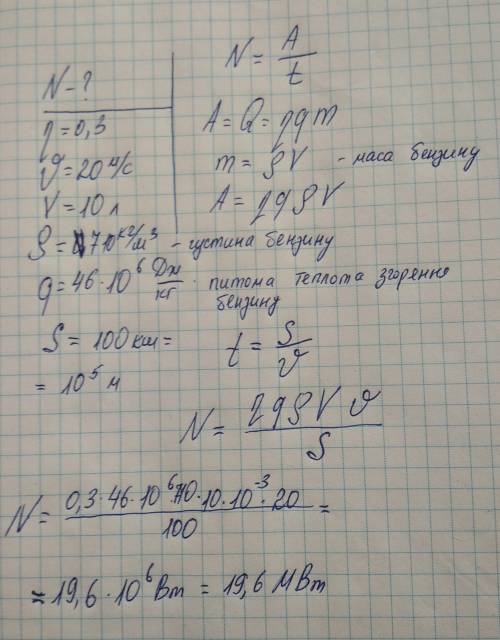 N - ?
η = 0,3
ϑ = 20 м/с
V = 10 л
ρ = 710 кг/м³ - густина бензину
q = 46·10⁶ Дж/кг - питома теплота згорення бензину
S = 100 км =
= 10⁵ м
N = A/t
A = Q = ηqm
m = ρV - маса бензину
A = ηqρV
t = S/ϑ
N = ηqρVϑ/S
N = 0,3·46·10⁶·710·10·10⁻³·20/100 =
= 19,6·10⁶ Вт = 19,6 МВт